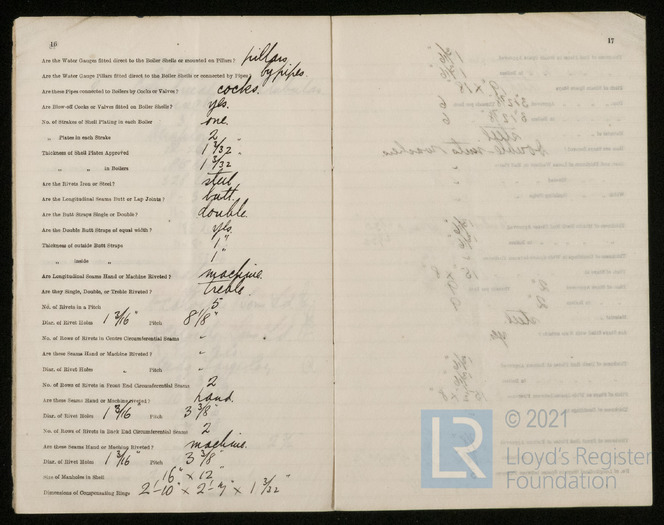 16
Are the Water Gauges fitted direct to the Boiler Shells or mounted on Pillars? pillars.
Are the Water Gauge Pillars fitted direct to the Boiler Shells or connected by Pipes? by pipes.
Are these Pipes connected to Boilers by Cocks or Valves? cocks.
Are Blow-off Cocks or Valves fitted on Boiler Shells? yes.
No. of Strakes of Shell Plating in each Boiler one.
„ Plates in each Strake 2
Thickness of Shell Plates Approved 1 3/32 "
„ „ in Boilers 1 3/32
Are the Rivets Iron or Steel? steel.
Are the Longitudinal Seams Butt or Lap Joints? butt.
Are the Butt Straps Single or Double? double.
Are the Double Butt Straps of equal width? yes.
Thickness of outside Butt Straps 1"
„ inside „ 1"
Are Longitudinal Seams Hand or Machine Riveted? machine.
Are they Single, Double, or Treble Riveted? treble.
No. of Rivets in a Pitch 5
Diar. of Rivet Holes 1 3/16" Pitch 8 1/8"
No. of Rows of Rivets in Centre Circumferential Seams "
Are these Seams Hand or Machine Riveted? "
Diar. of Rivet Holes " Pitch "
No. of Rows of Rivets in Front End Circumferential Seams 2
Are these Seams Hand or Machine riveted? hand.
Diar. of Rivet Holes 1 3/16" Pitch 3 3/8"
No. of Rows of Rivets in Back End Circumferential Seams 2
Are these Seams Hand or Machine Riveted? machine.
Diar. of Rivet Holes 1 3/16" Pitch 3 3/8"
Size of Manholes in Shell 16" × 12"
Dimensions of Compensating Rings 2'-10" × 2'-7" × 1 3/32"
17
LR © 2021
Lloyd's Register
Foundation